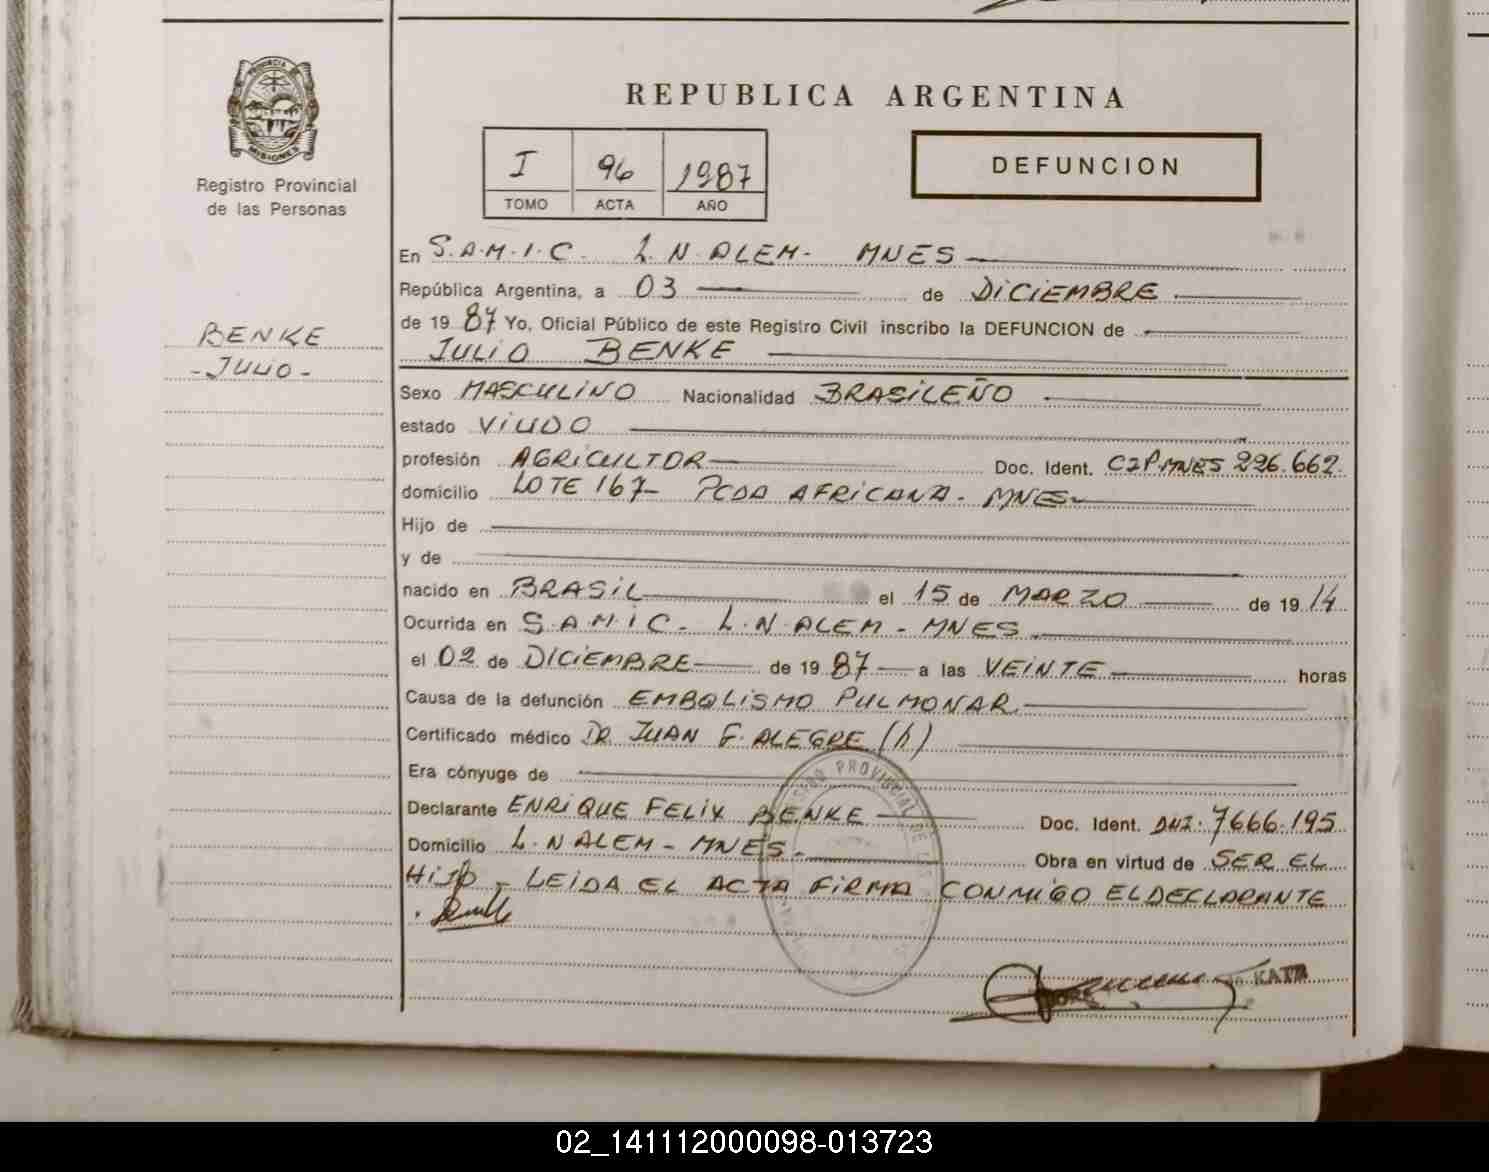 PROVINCIA DE
MISIONES
Registro Provincial
de las Personas
REPUBLICA ARGENTINA
I 96 1987
TOMO ACTA AÑO
DEFUNCION
En S.A.M.I.C. L.N. ALEM- MNES
República Argentina, a 03 de DICIEMBRE
de 19 87 Yo, Oficial Público de este Registro Civil inscribo la DEFUNCION de
JULIO BENKE
BENKE
-JULIO-
Sexo MASCULINO Nacionalidad BRASILEÑO
estado VIUDO
profesión AGRICULTOR Doc. Ident. CIP.MNES 226.662
domicilio LOTE 167- PCDA AFRICANA- MNES
Hijo de
y de
nacido en BRASIL el 15 de MARZO de 19 14
Ocurrida en S.A.M.I.C- L.N. ALEM- MNES
el 02 de DICIEMBRE de 19 87 a las VEINTE horas
Causa de la defunción EMBOLISMO PULMONAR
Certificado médico DR. JUAN G. ALEGRE (h)
Era cónyuge de
Declarante ENRIQUE FELIX BENKE Doc. Ident. DNI. 7666.195
Domicilio L.N ALEM- MNES- Obra en virtud de SER EL
HIJO - LEIDA EL ACTA FIRMA CONMIGO EL DECLARANTE
PROVINCIAL DE
KATZ
02_141112000098-013723